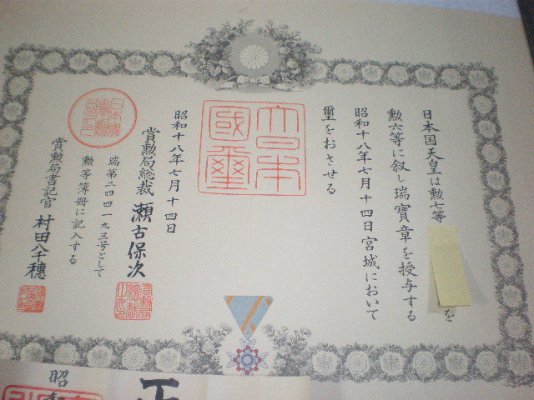 日本国天皇は勲七等 を
勲六等に叙し瑞寶章を授与する
昭和十八年七月十四日宮城において
璽をおさせる
大日本
國璽
昭和十八年七月十四日
賞勲局総裁 瀬古保次
瑞第二四四一九三号として
勲等簿冊に記入する
賞勲局書記官 村田八千穂
正
昭